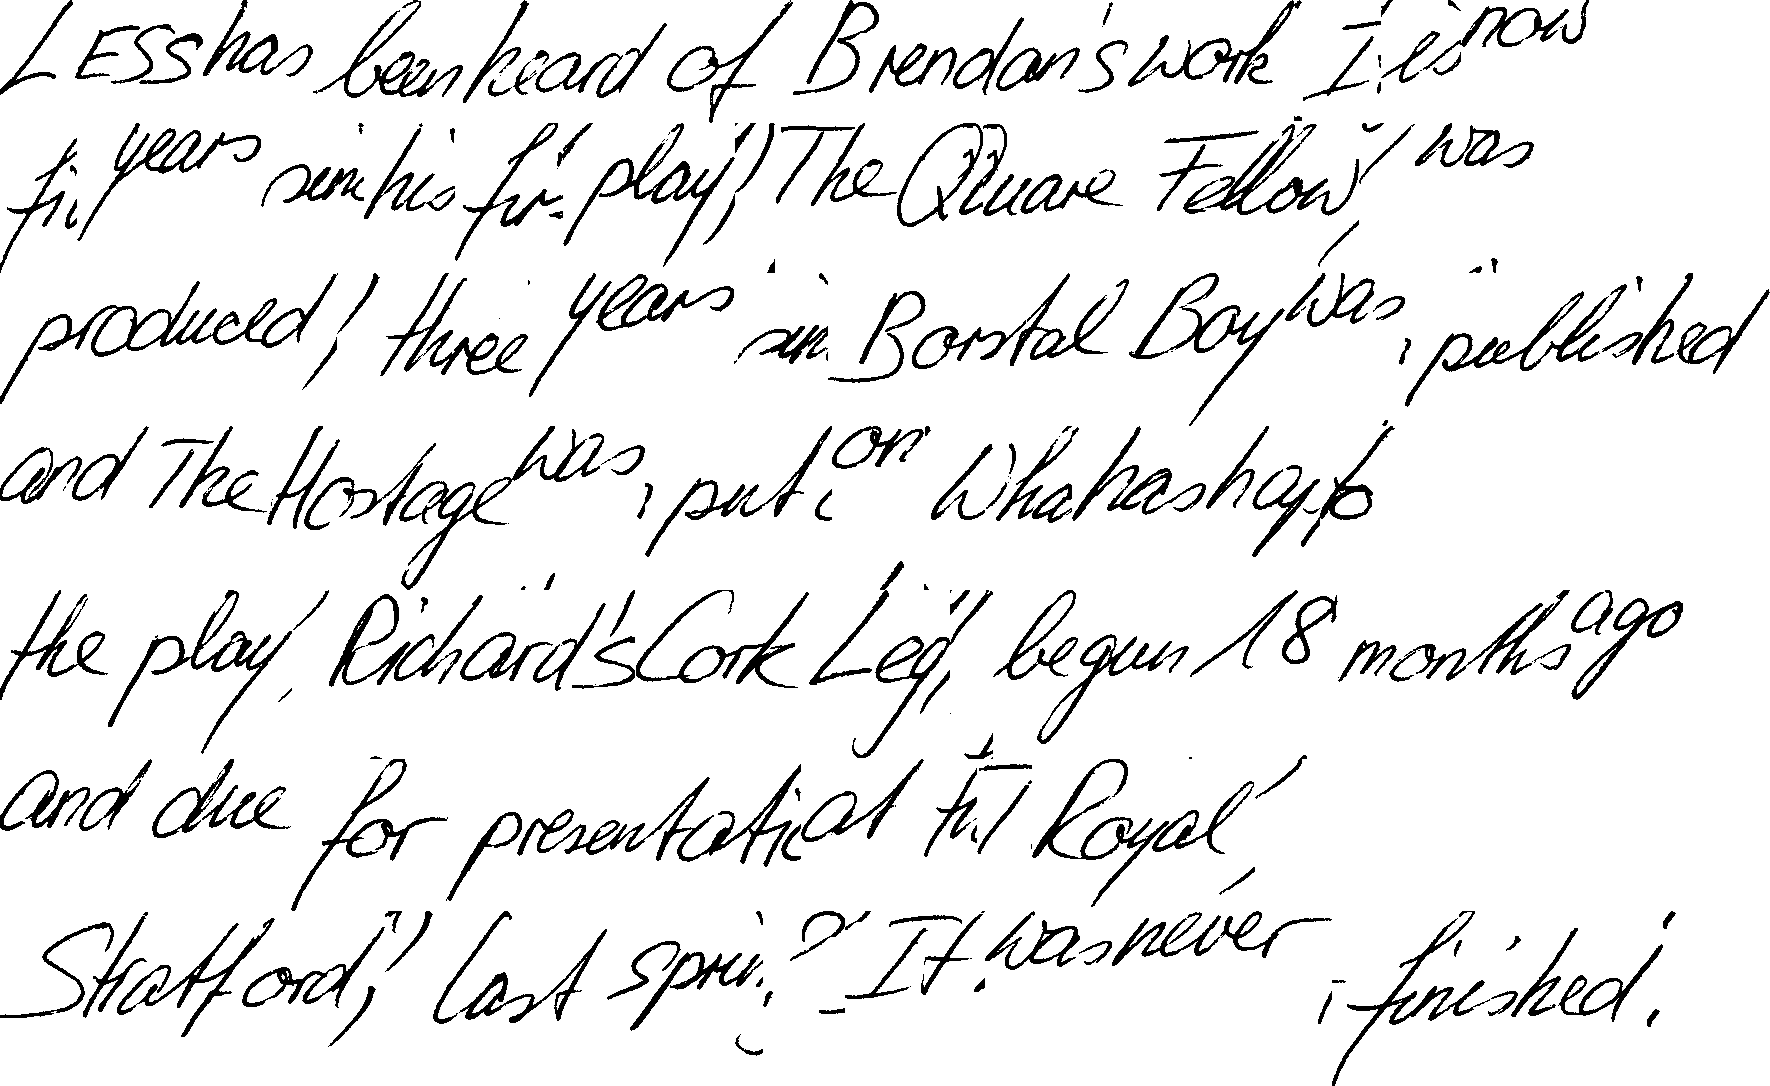 LESS has been heard of Brendan's work. It is now
five years since his first play, "The Quare Fellow", was
produced, three years since Borstal Boy was published
and The Hostage was put on. What has happened to
the play, "Richard's Cork Leg", begun 18 months ago
and due for presentation at the Royal,
Stratford, last spring? It was never finished.